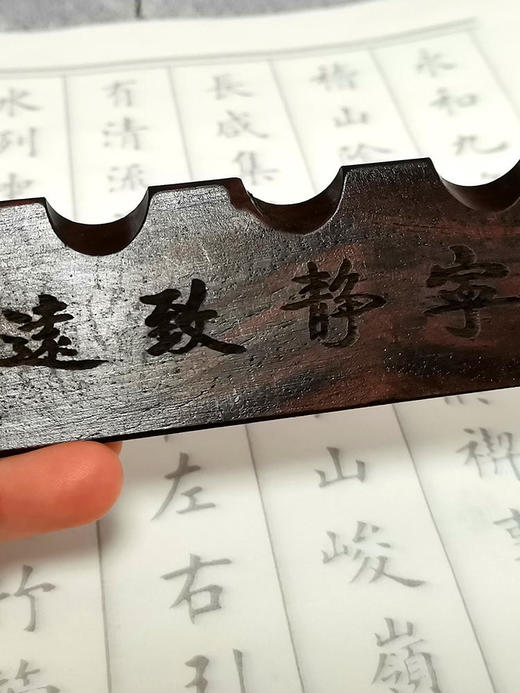 寧静致遠
永和九
稽山陰
禊事
長咸集
山峻嶺
有清流
左右引
水列坐
竹管